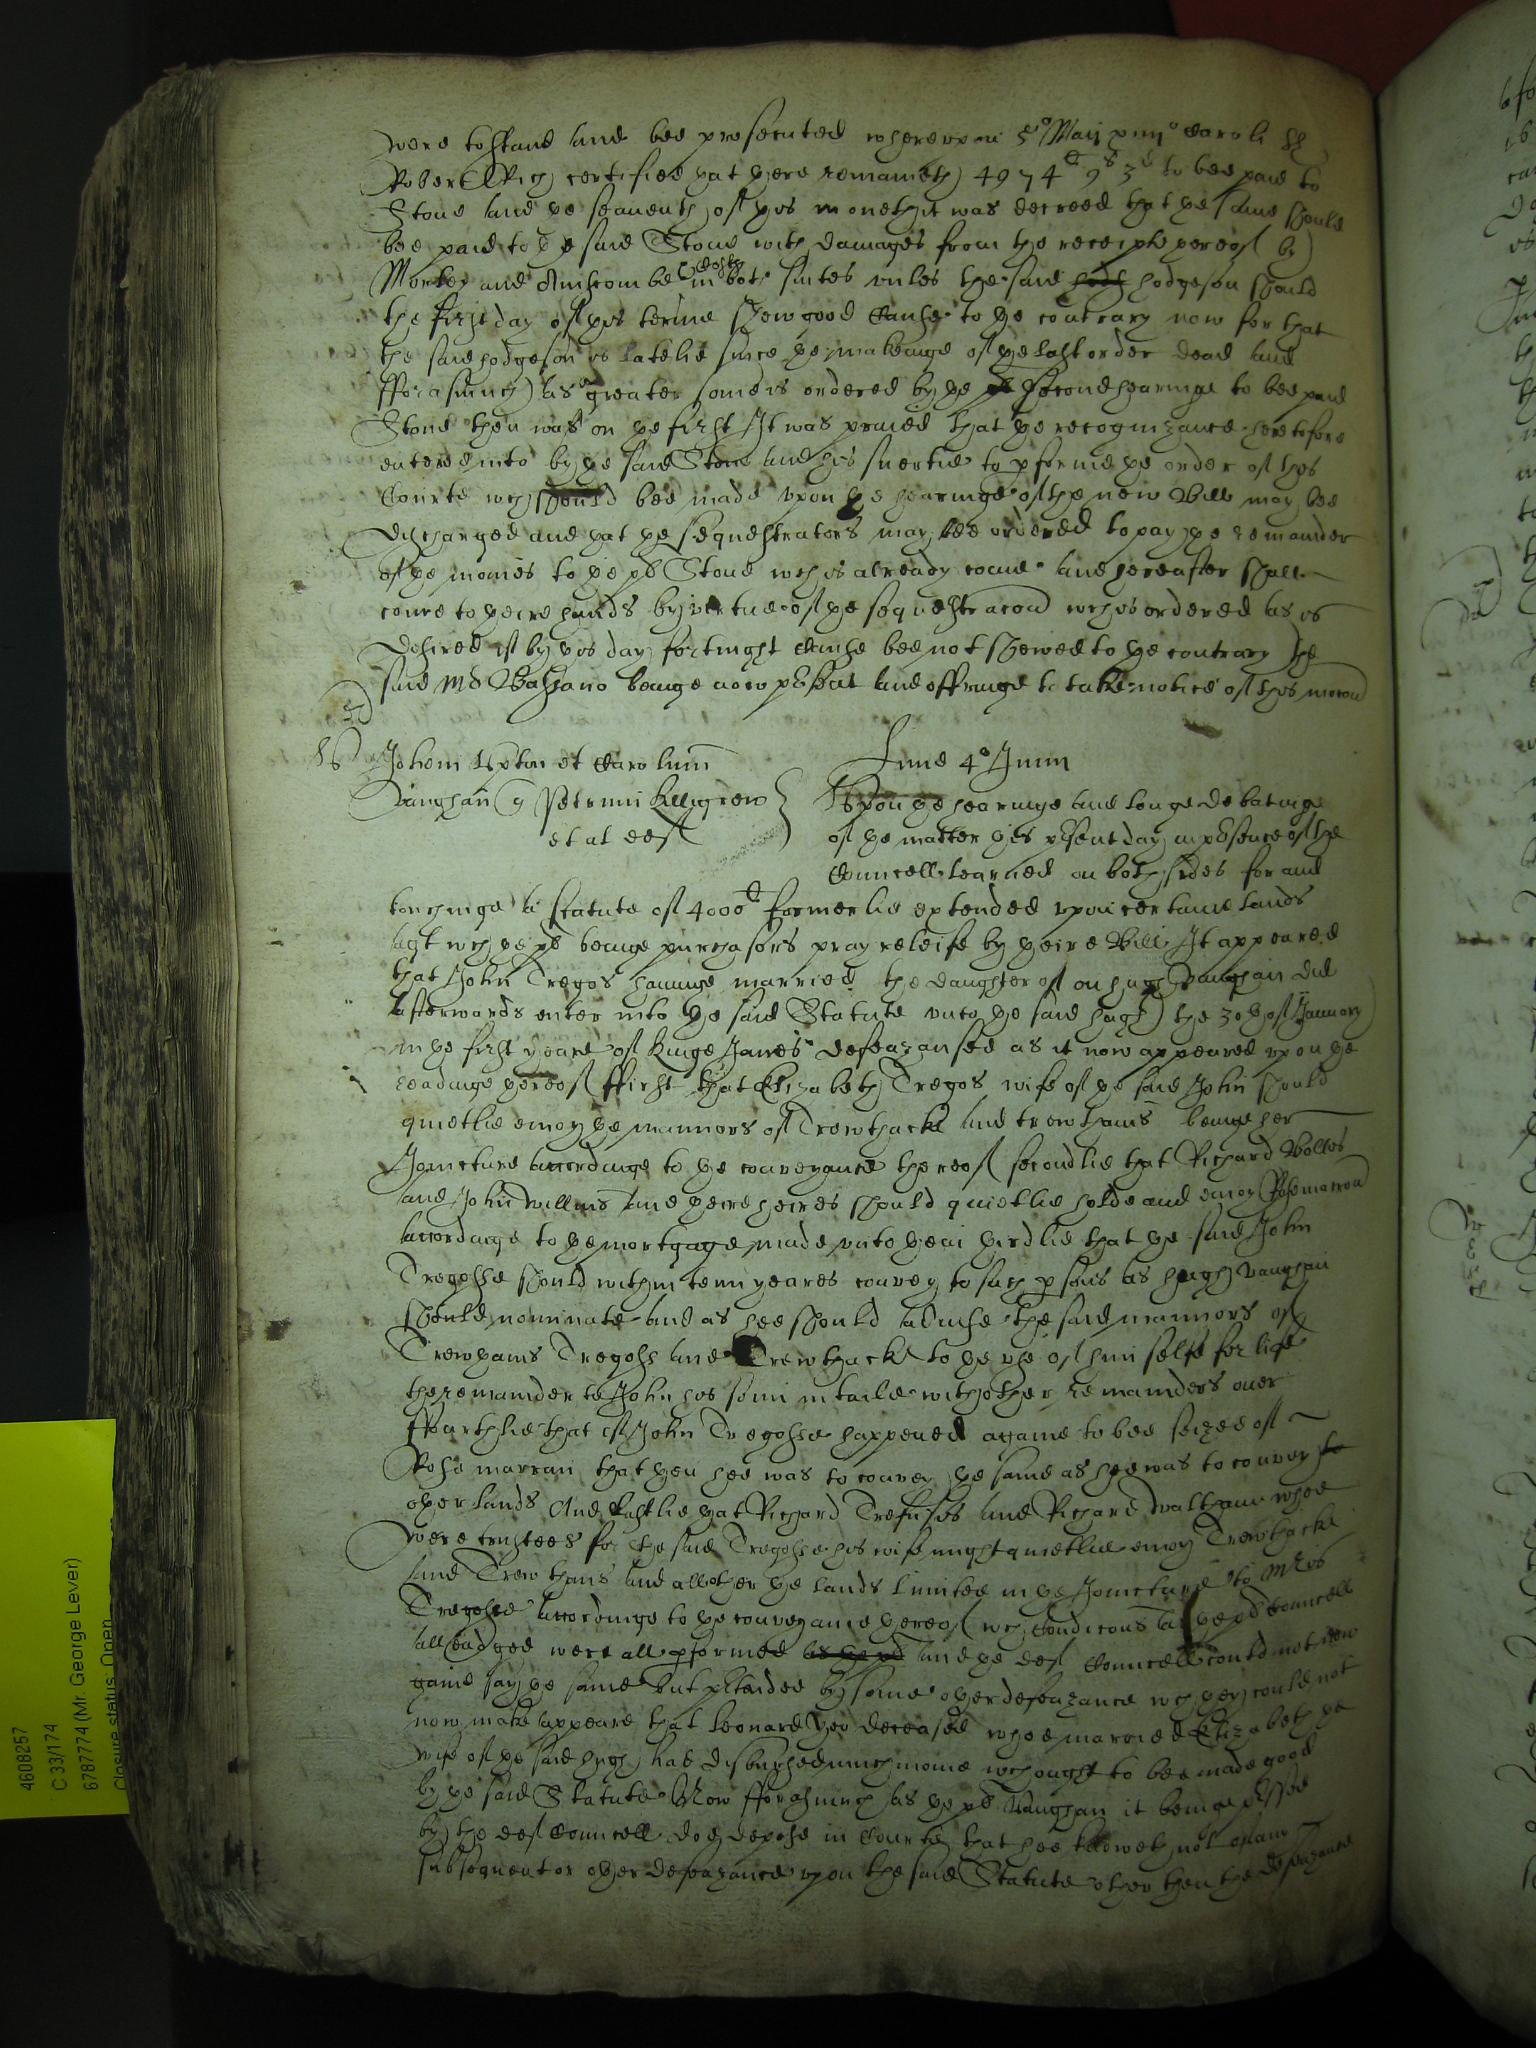 were to stand and bee prosecuted wherevpon 5º Maij Caroli Sr
Robert Rich certified yat yere remaineth 4974li 9s 3d to bee paid to
Stone and ye seauenth of yis moneth it was decreed that ye same should
bee paid to ye said Stone with damages from the receipte yereof by
Morley and Anscombe wth Costs in both suites vnles the said hodgeson should
the first day of yis terme shew good Cause to ye contrary now for that
the said hodgeson is latelie since ye makeinge of ye last order dead and
fforasmuch as greater some is ordered by ye second hearinge to bee paid
Stone then was on ye first It was praied that ye recognizance heretofore
entered into by ye said Stone and his suertie to pforme ye order of this
Courte wch should bee made vpon ye hearinge of the new Bill may bee
discharged and yat ye sequestrators may bee ordered to pay ye remainder
of ye monies to ye pl Stone wch is already come and hereafter shall
come to yeire hands by vertue of ye sequestracon wch is ordered as is
desired if by yis day fortnight Cause bee not shewed to ye contrary ye
said Mr Bassano beinge now psent and offringe to take notice of this mocon
Johem Vpton et Carolum
Vaughan q Petrum Killigrew
et al def
Lune 4º Junii
Vpon ye hearinge and longe debatinge
of ye matter yis psent day in psence of the
Councell learned on both sides for and
touchinge a statute of 4000li formerlie extended vpon certaine lands
agt wch ye pl beinge purchasors pray releife by yeire Bill It appeared
that John Tregos hauinge married the daughter of on hugh Vaughan did
afterwards enter into ye said Statute vnto ye said hugh the 30th of January
in ye first yeare of Kinge James defeazansed as it now appeared vpon ye
readinge yereof ffirst that Elizabeth Tregos wife of ye said John should
quietlie enioy ye mannors of Trewthacke and trewthans beinge her
Joincture accordinge to ye conveyance thereof secondlie that Richard Bolles
and John Willms and yeire heires should quietlie holde and enioy Rosemarron
accordinge to ye mortgage made vnto yem yirdlie that ye said John
Tregosse should within tenn yeares convey to such psons as hugh vaughan
should nominate and as hee should aduise the said mannors of
Trewyans Tregoss and Trewthacke to ye vse of him selfe for life
the remainder to John his sonn in taile with other remainders ouer
ffourthlie that if John Tregosse happened againe to bee seized of
Rose marran that yen hee was to convey ye same as hee was to convey the
oyer lands And lastlie yat Richard Trefusis and Richard Waltham whoe
were trustees for the said Tregosse his wife might quietlie enioy Trewthacke
and Trewthans and all other ye lands limited in ye Joincture to Mris
Tregosse accordinge to ye conveyance yereof wch Condicons as ye pls Councell
alleadged were all pformed as ye pl and ye def Councell could not now
gaine say ye same but ptended by some oyer defeazance wch yey could not
now make appeare that Leonard Yeo deceased whoe married Elizabeth ye
wife of ye said hugh had disbursed much monie wch ought to bee made good
by ye said Statute Now fforasmuch as ye pl Vaughan it beinge pssed
by the def Councell doeth depose in Courte that hee knoweth not of any
subsequent or oyer defeazance vpon the said Statute other then the defeazance
4608257
C 33/174
6787774 (Mr. George Lever)
Closure status: Open